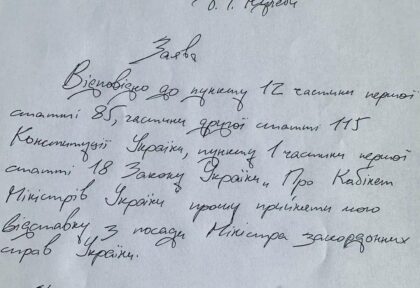 Заява
Відповідно до пункту 12 частини першої
статті 85, частини другої статті 115
Конституції України, пункту 1 частини першої
статті 18 Закону України „Про Кабінет
Міністрів України прошу прийняти мою
відставку з посади Міністра закордонних
справ України.